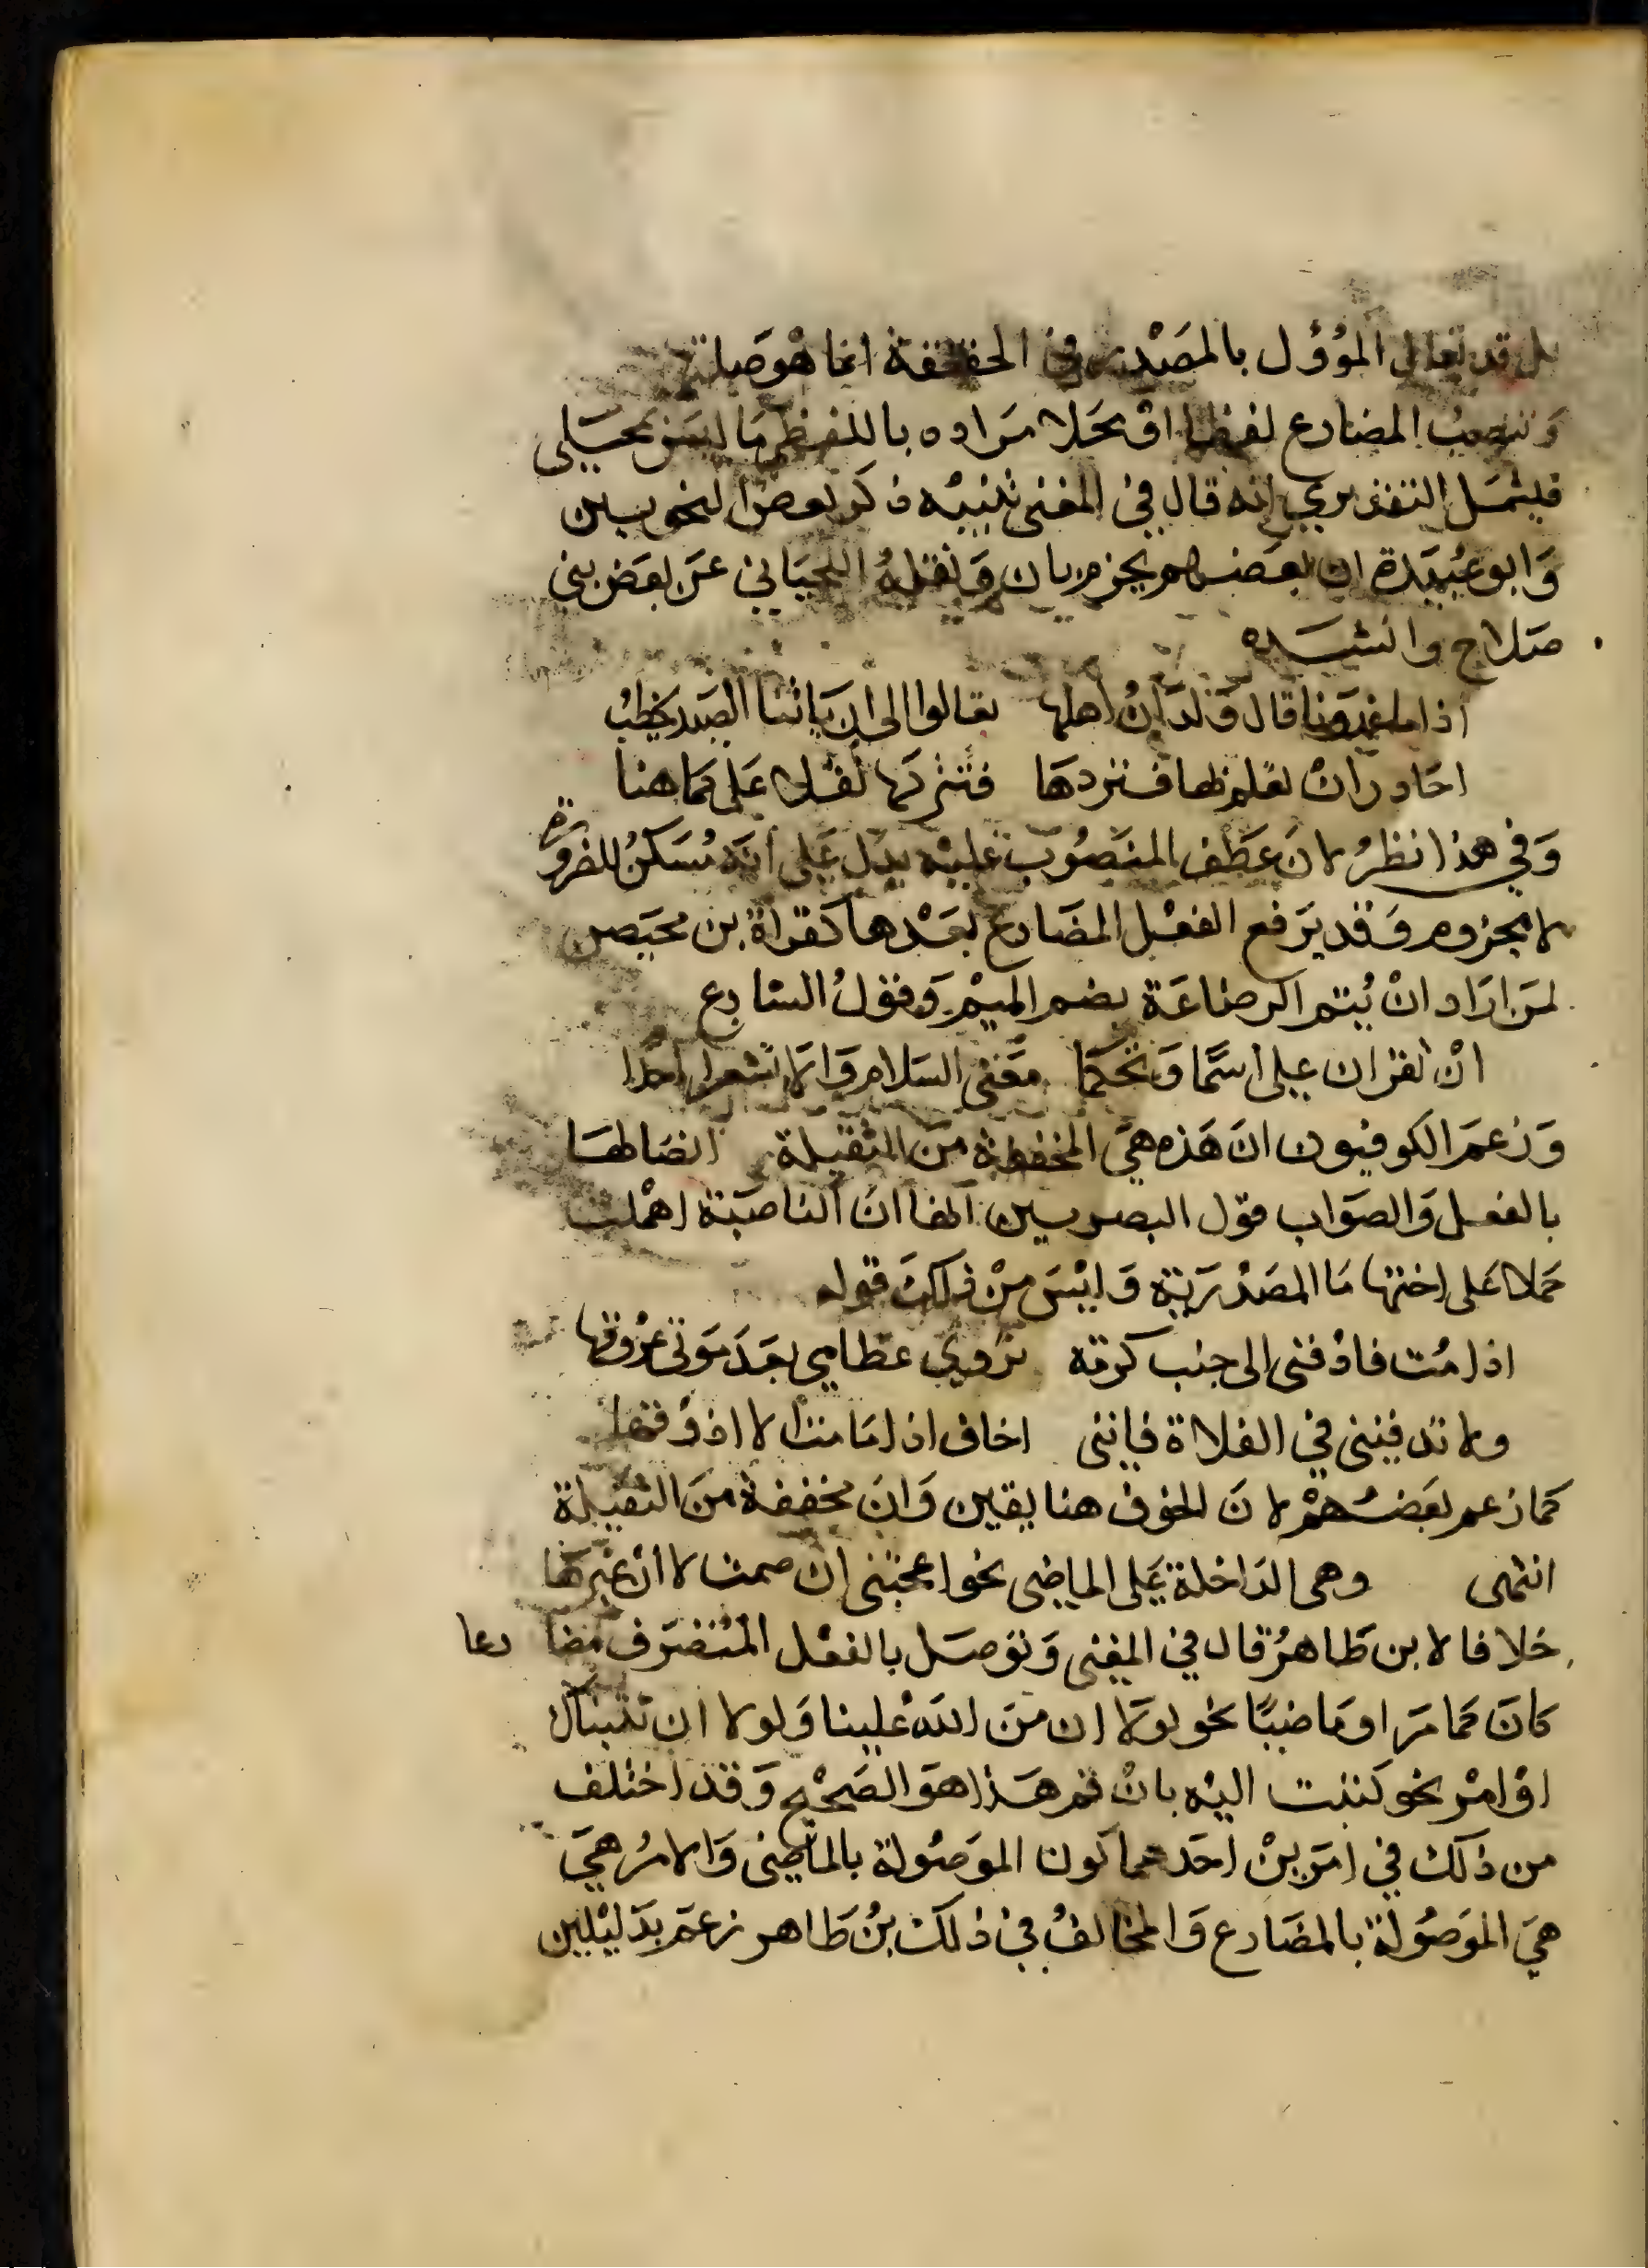 بل قد يقال المؤول بالمصدر في الحقيقة انما هو صلته
وَتنصبُ المضارع لفظا اوْ محَلا مَراده باللفظ مَا ليسَ بمحَلى
فليشمَل التقديري انه قال في المغنى تنبيْه ذكر بعض النحويين
وَابو عُبَيدة ان بعضهم يجزم بان وَنقلهُ اللحيَاني عَن بعَض بني
صَلاح وانشَده
اذا ما غدَونا قال وَلدَانُ اهلها تعالوا الى ان يَاتنا الصَيد نحطبُ
احَاذر انْ تعلم بها فتردهَا فتتركها ثقلا عَلي كمَا هنا
وَفي هذا نظرُ لانَ عَطف المنصُوب عليْه يدل عَلى انهَ مُسَكنُ للضرورة
لا مجزوم وَقد يَرفع الفعْل المضَارع بعَدْها كقراة بن محيَصن
لمَن ارَاد انْ يُتم الرضاعَة بضم الميْم وَقولُ الشاعر
انْ تقران على اسَّما وَيحَكمَا مَنى السَلام وَان لا تشعرا احَدا
وَزعمَ الكوفيون انَ هَذه هيَ المخففة منَ الثقيلة اتصَالهَا
بالفعل وَالصوَاب قوْل البصريين انها انَ الناصبَة اهْملت
حَملا عَلى اختها مَا المصَدْريَة وَليْسَ منْ ذلكَ قوله
اذا مُت فادْفنى الى جنب كرمَة تروي عظامي بعَدَ مَوتى عرُوقها
ولا تدفننى في الفلاة فإننى اخاف اذا مَا متُ ان لا اذوُقها
كما زعم بعَضُهُمْ لانَ الخوف هنا يقين وَانَ مخففة منَ الثقيلة
انتهى وهى الدَاخلة عَلى الماضى نحو اعجبَنى ان صمت لا ان غيرهَا
خلافا لابن طَاهرُ قال في المغنى وَتوصَل بالفعْل المُتصَرف مضا رعا
كانَ كما مَر او مَاضيًا نحو لوْلا ان مَنَ اللهَ علينا وَلولا ان ثبتناك
اوْ امْر نحو كتبت اليْه بانْ قم هَذا هوَ الصَحْيح وَقد اختلف
من ذلك في امرَيْنْ احَدهما كون الموَصُولة بالماضى وَالامرُ هيَ
هيَ الموَصُولة بالمضَارع وَالمخالفُ في ذلكَ بنُ طَاهر زعمَ بدَليْلين